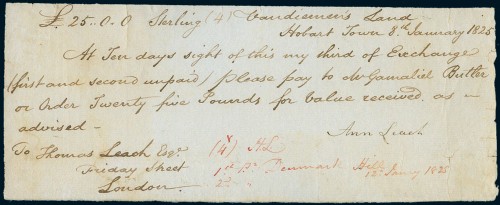 £. 25..0..0 Sterling (4) Vandiemen's Land
Hobart Town 8th January 1825
At Ten days sight of this my third of Exchange
(first and second unpaid) Please pay to Mr Gamaliel Butler
or Order Twenty five Pounds for Value received as
advised –
Ann Leach
To Thomas Leach Esqr. (4) HL
Friday Street 1st Pr. Denmark Hill
London. 2d 12 Janry 1825